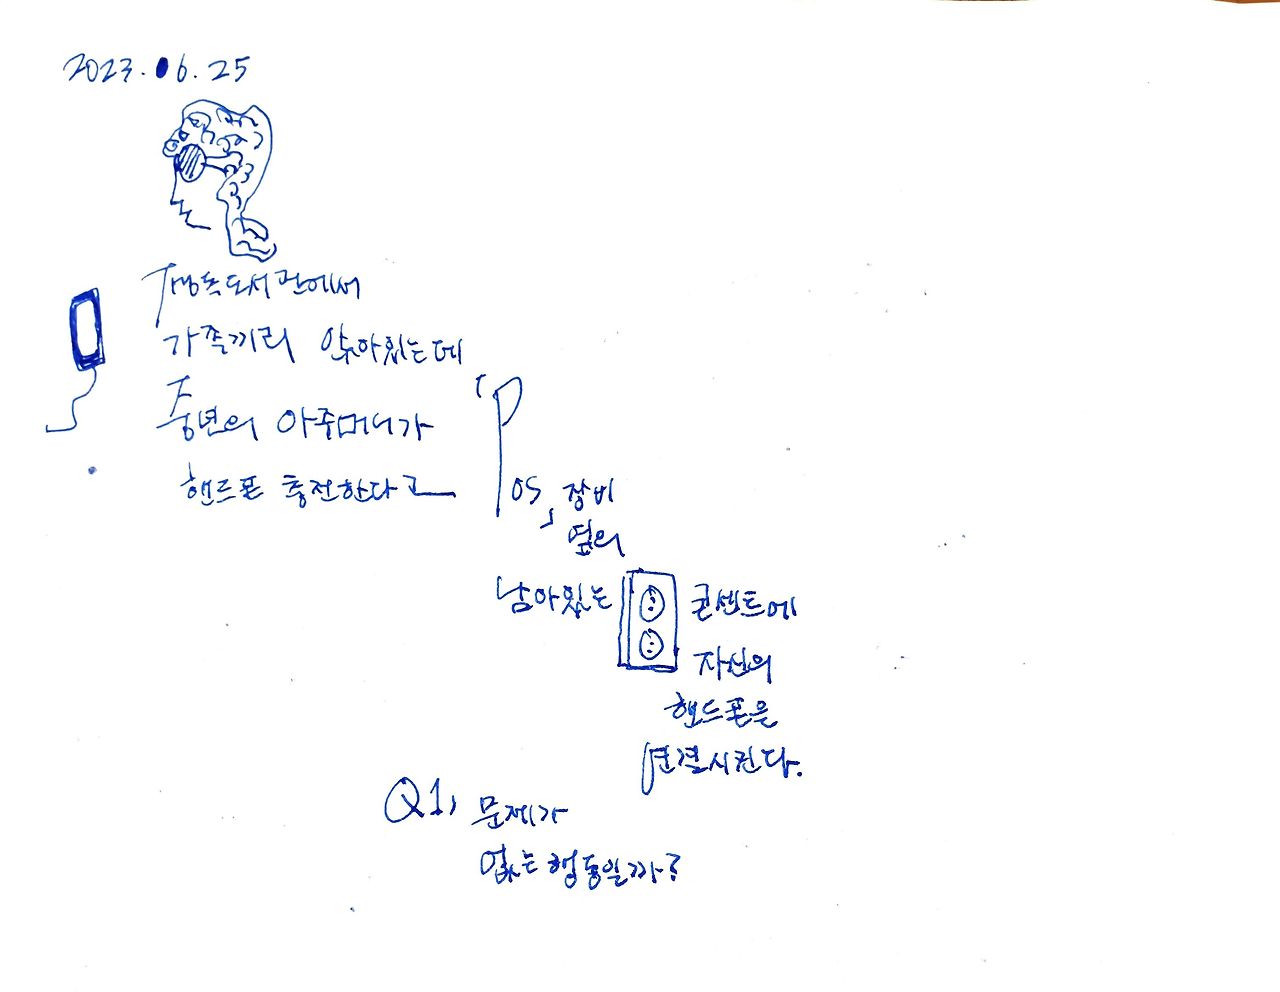 2023. 06. 25
도서관에서
가족끼리 앉아있는데
중년의 아주머니가
핸드폰 충전한다고
「POS」 장비
옆의
남아있는 콘센트에
자신의
핸드폰을
연결시킨다.
Q1, 문제가
없는 행동일까?